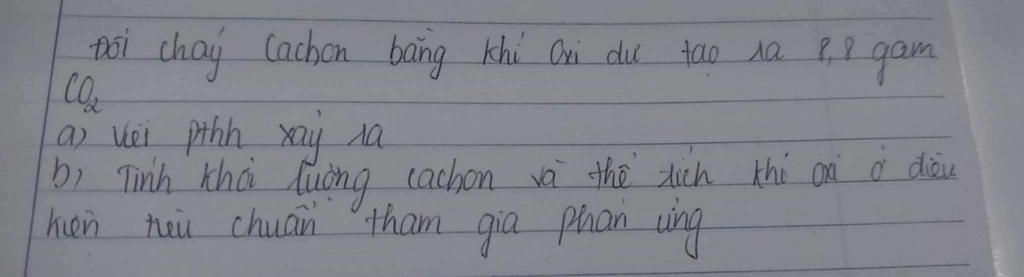 Đối cháy Cachon bằng khí Oxi dư tạo ra 8,8 gam
CO2
a) Viết pthh xảy ra
b) Tính khối lượng cachon và thể tích khí oxi ở điều
kiện tiêu chuẩn tham gia phản ứng